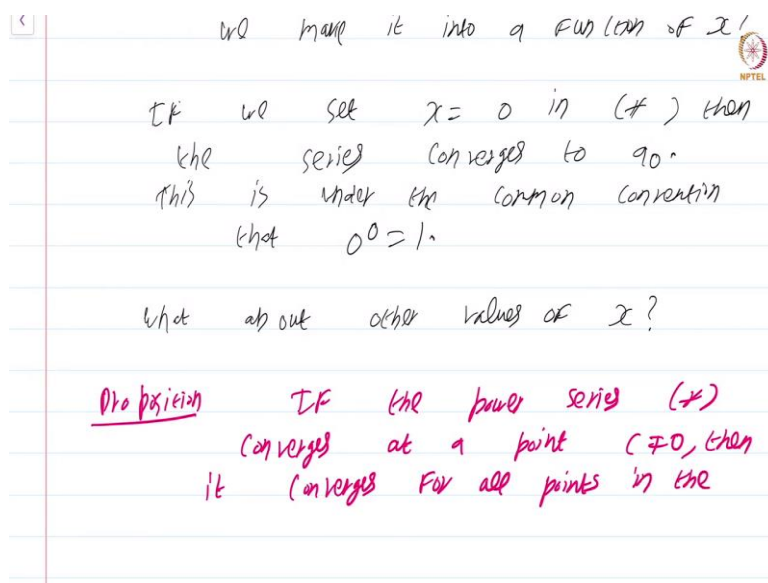 we make it into a function of x!
NPTEL
If we set x = 0 in (*) then
the series converges to a₀.
This is under the common convention
that 0⁰ = 1.
What about other values of x?
Proposition If the power series (*)
converges at a point c ≠ 0, then
it converges for all points in the